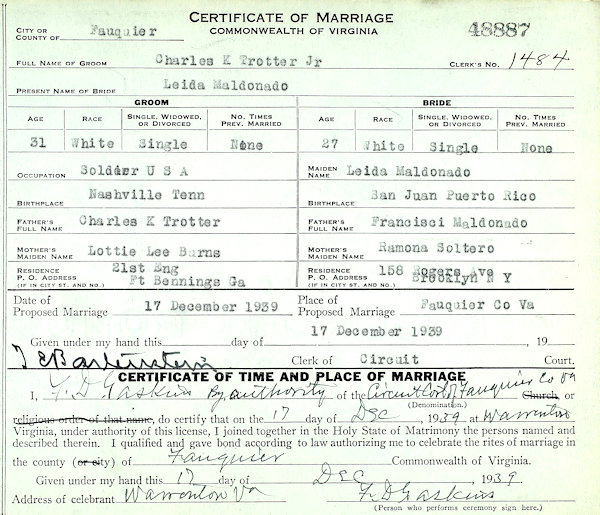 CERTIFICATE OF MARRIAGE
COMMONWEALTH OF VIRGINIA
48887
CITY OR
COUNTY OF Fauquier
FULL NAME OF GROOM Charles K Trotter Jr CLERK'S NO. 1484
PRESENT NAME OF BRIDE Leida Maldonado
GROOM BRIDE
AGE RACE SINGLE, WIDOWED, OR DIVORCED NO. TIMES PREV. MARRIED AGE RACE SINGLE, WIDOWED, OR DIVORCED NO. TIMES PREV. MARRIED
31 White Single None 27 White Single None
OCCUPATION Soldier U S A MAIDEN NAME Leida Maldonado
BIRTHPLACE Nashville Tenn BIRTHPLACE San Juan Puerto Rico
FATHER'S FULL NAME Charles K Trotter FATHER'S FULL NAME Francisci Maldonado
MOTHER'S MAIDEN NAME Lottie Lee Burns MOTHER'S MAIDEN NAME Ramona Soltero
RESIDENCE P. O. ADDRESS (IF IN CITY ST. AND NO.) 21st Eng Ft Bennings Ga RESIDENCE P. O. ADDRESS (IF IN CITY ST. AND NO.) 158 Rogers Ave Brooklyn N Y
Date of Proposed Marriage 17 December 1939 Place of Proposed Marriage Fauquier Co Va
Given under my hand this day of 17 December 1939 , 19
Clerk of Circuit Court.
CERTIFICATE OF TIME AND PLACE OF MARRIAGE
I, F. D Gaskins By authority of the Circuit Cort of Fauquier Co Va Church, or
(Denomination.)
religious order of that name, do certify that on the 17 day of Dec , 1939, at Warrenton
Virginia, under authority of this license, I joined together in the Holy State of Matrimony the persons named and
described therein. I qualified and gave bond according to law authorizing me to celebrate the rites of marriage in
the county (or city) of Fauquier Commonwealth of Virginia.
Given under my hand this 17 day of Dec , 1939
Address of celebrant Warrenton Va F. D Gaskins
(Person who performs ceremony sign here.)